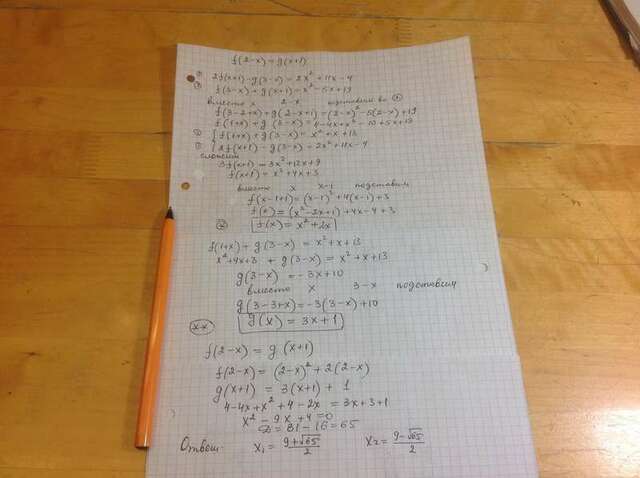 f(2-x) = g(x+1)
① 2f(x+1)-g(3-x) = 2x²+11x-4
② f(3-x)+g(x+1)=x²-5x+19
вместо x 2-x подставим во ②
f(3-2+x)+g(2-x+1)=(2-x)²-5(2-x)+19
f(1+x)+g(3-x)=4-4x+x²-10+5x+19
② f(1+x)+g(3-x)=x²+x+13
① 2f(x+1)-g(3-x)=2x²+11x-4
сложим
3f(x+1)=3x²+12x+9
f(x+1)=x²+4x+3
вместо x x-1 подставим
f(x-1+1)=(x-1)²+4(x-1)+3
f(x)=(x²-2x+1)+4x-4+3
f(x)=x²+2x
f(1+x)+g(3-x)=x²+x+13
x²+4x+3+g(3-x)=x²+x+13
g(3-x)=-3x+10
вместо x 3-x подставим
g(3-3+x)=-3(3-x)+10
g(x)=3x+1
f(2-x)=g(x+1)
f(2-x)=(2-x)²+2(2-x)
g(x+1)=3(x+1)+1
4-4x+x²+4-2x=3x+3+1
x²-9x+4=0
D=81-16=65
Ответ: x₁=(9+√65)/2 x₂=(9-√65)/2